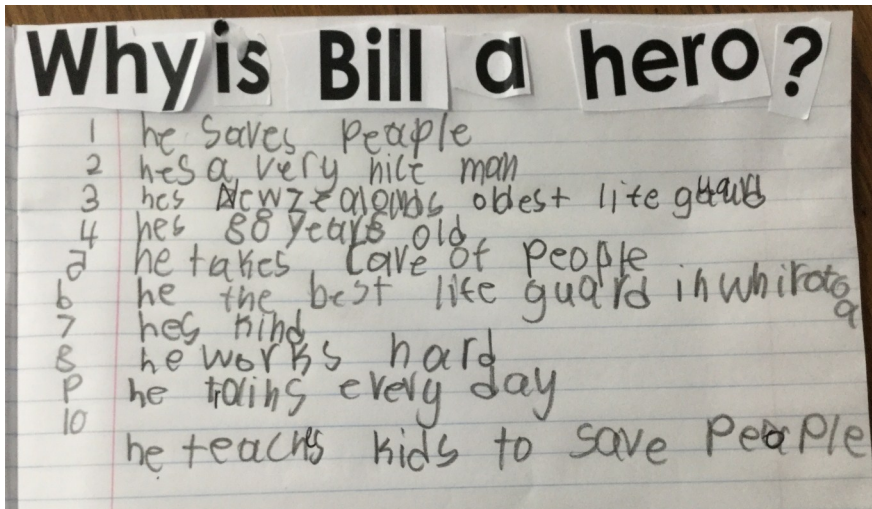 Why is Bill a hero?
1 he saves peaple
2 hes a very nice man
3 hes Newzealands oldest life guard
4 hes 88 years old
5 he takes care of people
6 he the best life guard in whiroto a
7 hes kind
8 he works hard
9 he trains every day
10
he teaches kids to save people